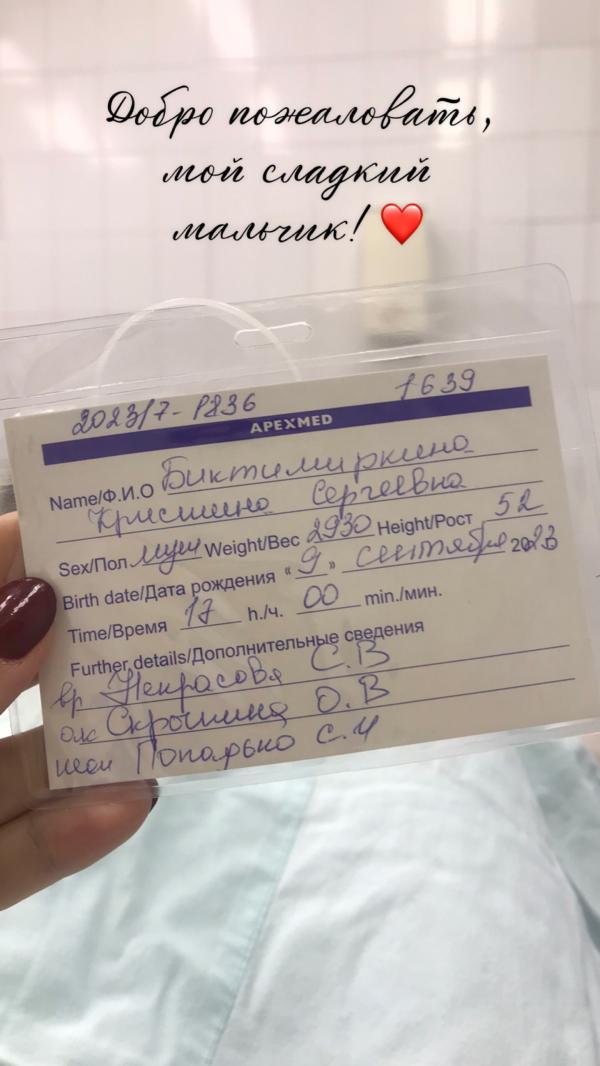 Добро пожаловать,
мой сладкий
мальчик! ❤️
2023/7-P236 1639
APEXMED
Name/Ф.И.О Биктимиркина
Кристина Сергеевна
Sex/Пол муж Weight/Вес 2930 Height/Рост 52
Birth date/Дата рождения « 9 » сентября 2023
Time/Время 17 h./ч. 00 min./мин.
Further details/Дополнительные сведения
вр Некрасова С.В
Скрошина О.В
Попарько С.И